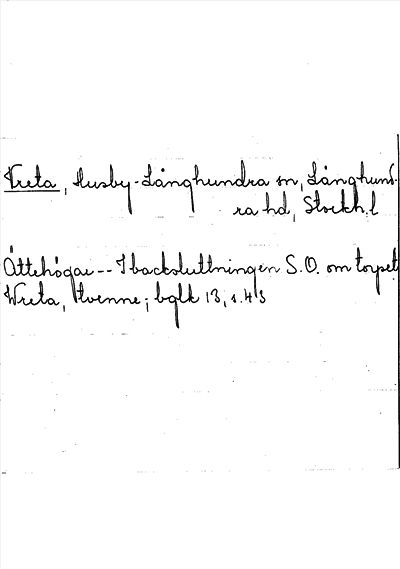 Vreta, Husby-Långhundra sn, Långhund-
ra hd, Stockh.l
Ättehögar -- I backsluttningen S.O. om torpet
Wreta, tvenne; bglk 13, s. 43